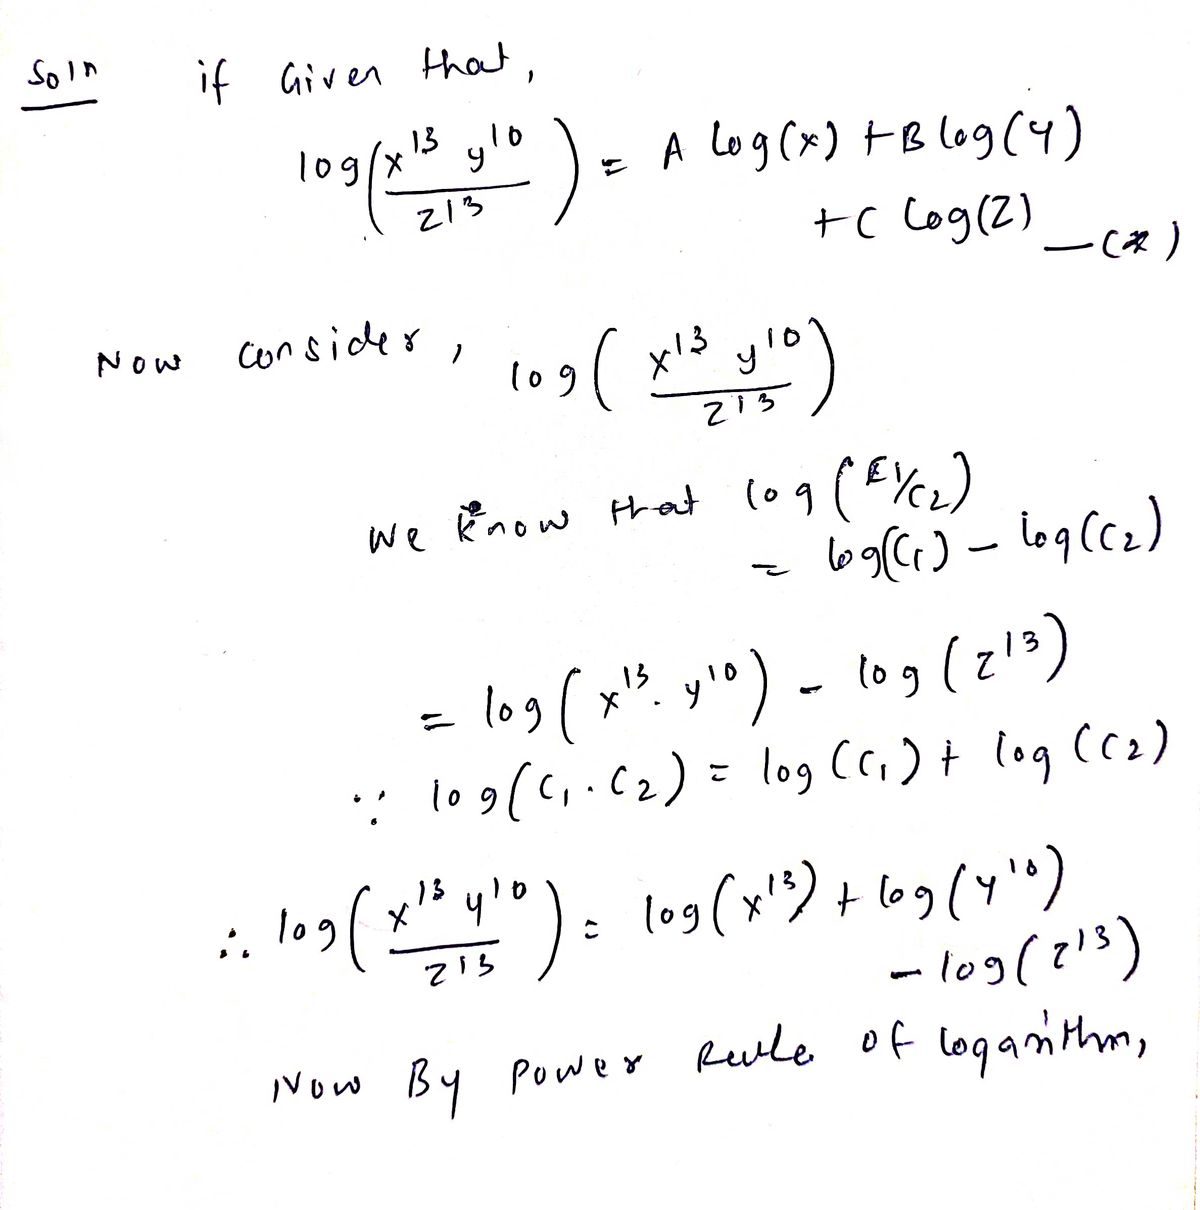 Soln if Given that,
log(x^13 y^10 / z^13) = A log(x) + B log(y)
+ C log(z) —(*)
Now consider, log(x^13 y^10 / z^13)
We know that log(C1/C2)
= log(C1) - log(C2)
= log(x^13 . y^10) - log(z^13)
∵ log(C1 . C2) = log(C1) + log(C2)
∴ log(x^13 y^10 / z^13) = log(x^13) + log(y^10)
- log(z^13)
Now By Power Rule of logarithm,